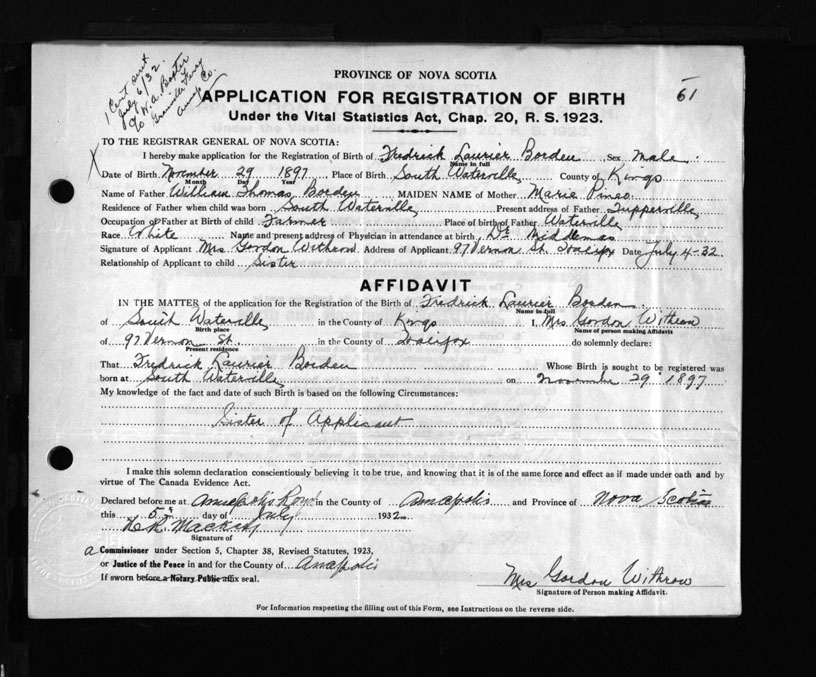 1 Cent sent
July 6/32.
To W. A. Baxter
Granville Ferry
Anna. Co.
61
PROVINCE OF NOVA SCOTIA
APPLICATION FOR REGISTRATION OF BIRTH
Under the Vital Statistics Act, Chap. 20, R. S. 1923.
TO THE REGISTRAR GENERAL OF NOVA SCOTIA:
X
I hereby make application for the Registration of Birth of Fredrick Laurier Borden Sex Male
Name in full
Date of Birth November 29 1897 Place of Birth South Waterville County of Kings
Month Day Year
Name of Father William Thomas Borden MAIDEN NAME of Mother Marie Pineo
Residence of Father when child was born South Waterville Present address of Father Tupperville
Occupation of Father at Birth of child Farmer Place of birth of Father Waterville
Race White Name and present address of Physician in attendance at birth, Dr Middlemas
Signature of Applicant Mrs Gordon Withrow Address of Applicant 97 Vernon St. Halifax Date July 4-32.
Relationship of Applicant to child Sister
AFFIDAVIT
IN THE MATTER of the application for the Registration of the Birth of Fredrick Laurier Borden
Name in full
of South Waterville in the County of Kings I, Mrs Gordon Withrow
Birth place Name of person making Affidavit
of 97 Vernon St. in the County of Halifax do solemnly declare:
Present residence
That Fredrick Laurier Borden Whose Birth is sought to be registered was
born at South Waterville on November 29 1897
My knowledge of the fact and date of such Birth is based on the following Circumstances:
Sister of Applicant
I make this solemn declaration conscientiously believing it to be true, and knowing that it is of the same force and effect as if made under oath and by
virtue of The Canada Evidence Act.
Declared before me at Annapolis Royal in the County of Annapolis and Province of Nova Scotia
this 5 day of July 1932
Mackay
Signature of
a Commissioner under Section 5, Chapter 38, Revised Statutes, 1923,
or Justice of the Peace in and for the County of Annapolis
If sworn before a Notary Public affix seal.
Mrs Gordon Withrow
Signature of Person making Affidavit.
For Information respecting the filling out of this Form, see Instructions on the reverse side.